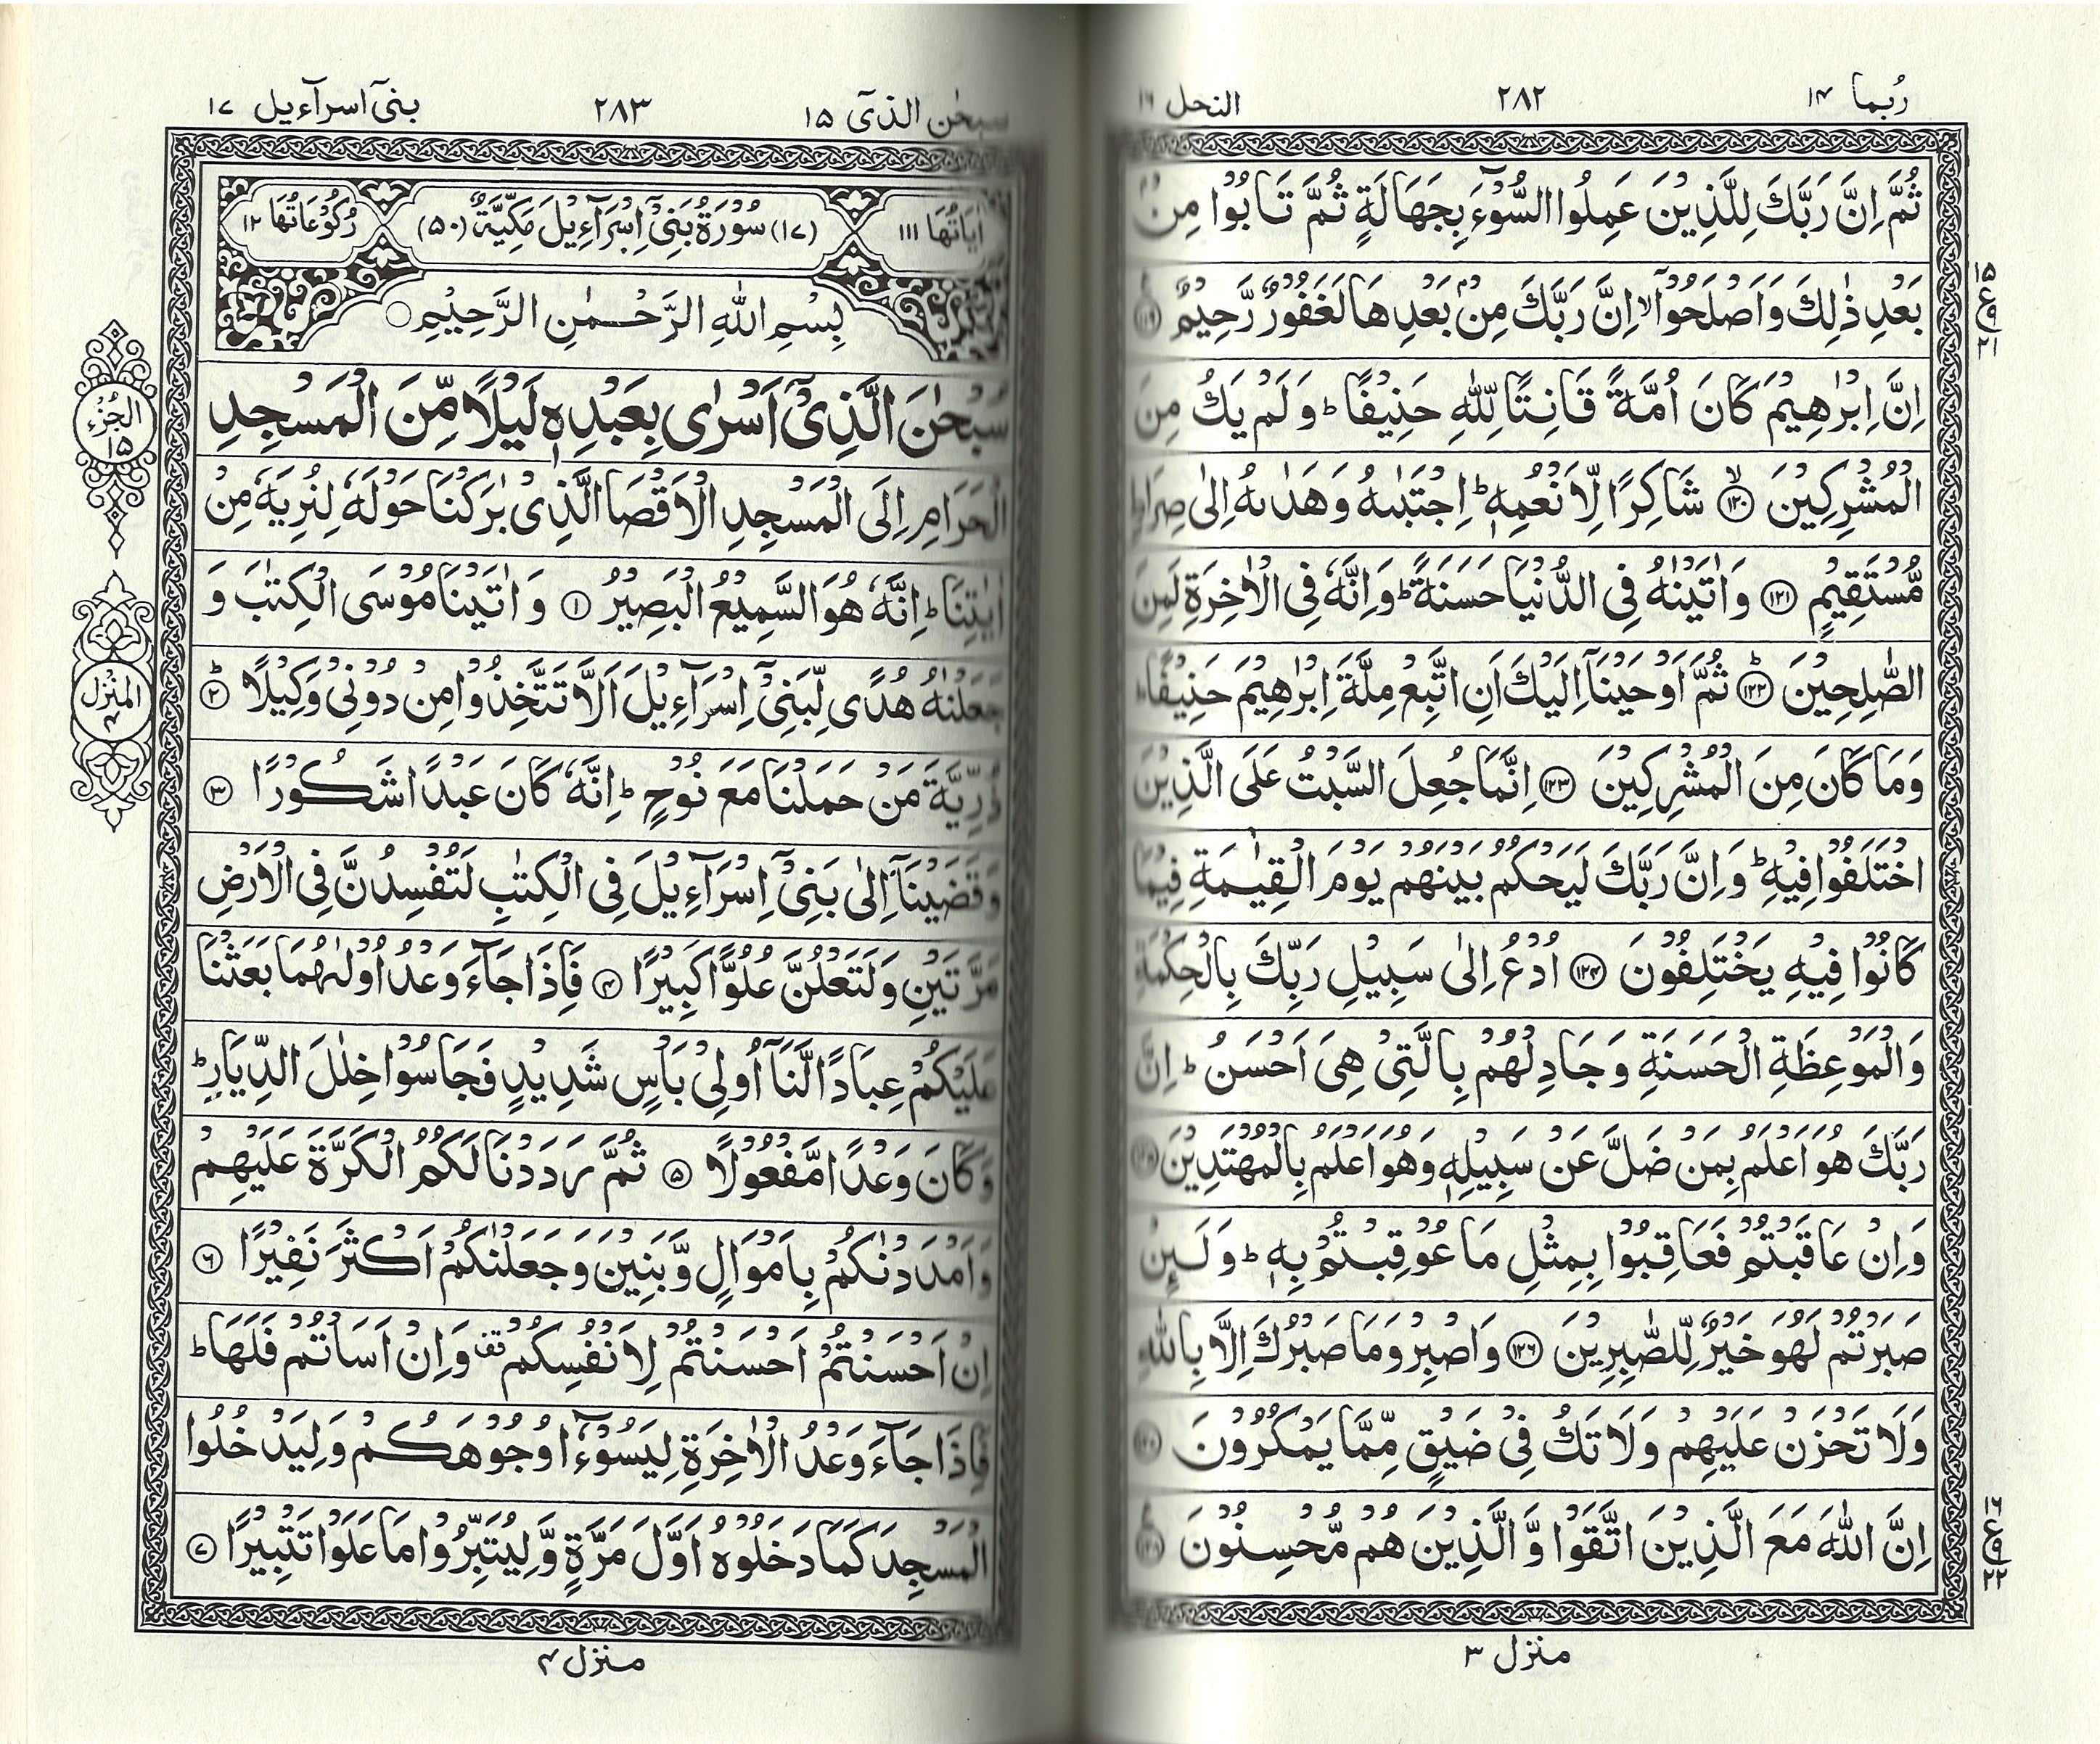 رُبما ١٤
٢٨٢
النحل ١٦
ثُمَّ اِنَّ رَبَّكَ لِلَّذِيْنَ عَمِلُوا السُّوْٓءَ بِجَهَالَةٍ ثُمَّ تَابُوْا مِنْۢ
بَعْدِ ذٰلِكَ وَاَصْلَحُوْٓا ۙ اِنَّ رَبَّكَ مِنْۢ بَعْدِهَا لَغَفُوْرٌ رَّحِيْمٌ ۧ ﴿١١٩﴾
١٥
ع
٩
٢١
اِنَّ اِبْرٰهِيْمَ كَانَ اُمَّةً قَانِتًا لِّلّٰهِ حَنِيْفًا ؕ وَلَمْ يَكُ مِنَ
الْمُشْرِكِيْنَ ۙ ﴿١٢٠﴾ شَاكِرًا لِّاَنْعُمِهٖ ؕ اِجْتَبٰىهُ وَهَدٰىهُ اِلٰى صِرَاطٍ
مُّسْتَقِيْمٍ ﴿١٢١﴾ وَاٰتَيْنٰهُ فِى الدُّنْيَا حَسَنَةً ؕ وَاِنَّهٗ فِى الْاٰخِرَةِ لَمِنَ
الصّٰلِحِيْنَ ؕ ﴿١٢٢﴾ ثُمَّ اَوْحَيْنَاۤ اِلَيْكَ اَنِ اتَّبِعْ مِلَّةَ اِبْرٰهِيْمَ حَنِيْفًا ؕ
وَمَا كَانَ مِنَ الْمُشْرِكِيْنَ ﴿١٢٣﴾ اِنَّمَا جُعِلَ السَّبْتُ عَلَى الَّذِيْنَ
اخْتَلَفُوْا فِيْهِ ؕ وَاِنَّ رَبَّكَ لَيَحْكُمُ بَيْنَهُمْ يَوْمَ الْقِيٰمَةِ فِيْمَا
كَانُوْا فِيْهِ يَخْتَلِفُوْنَ ﴿١٢٤﴾ اُدْعُ اِلٰى سَبِيْلِ رَبِّكَ بِالْحِكْمَةِ
وَالْمَوْعِظَةِ الْحَسَنَةِ وَجَادِلْهُمْ بِالَّتِىْ هِىَ اَحْسَنُ ؕ اِنَّ
رَبَّكَ هُوَ اَعْلَمُ بِمَنْ ضَلَّ عَنْ سَبِيْلِهٖ وَهُوَ اَعْلَمُ بِالْمُهْتَدِيْنَ ﴿١٢٥﴾
وَاِنْ عَاقَبْتُمْ فَعَاقِبُوْا بِمِثْلِ مَا عُوْقِبْتُمْ بِهٖ ؕ وَلَئِنْ
صَبَرْتُمْ لَهُوَ خَيْرٌ لِّلصّٰبِرِيْنَ ﴿١٢٦﴾ وَاصْبِرْ وَمَا صَبْرُكَ اِلَّا بِاللّٰهِ
وَلَا تَحْزَنْ عَلَيْهِمْ وَلَا تَكُ فِىْ ضَيْقٍ مِّمَّا يَمْكُرُوْنَ ﴿١٢٧﴾
اِنَّ اللّٰهَ مَعَ الَّذِيْنَ اتَّقَوْا وَّالَّذِيْنَ هُمْ مُّحْسِنُوْنَ ۧ ﴿١٢٨﴾
١٦
ع
٩
٢٢
منزل ٣
سبحٰن الذیۤ ١٥
٢٨٣
بنیۤ اسرآءيل ١٧
اٰيَاتُهَا ١١١
(١٧) سُوْرَةُ بَنِىْۤ اِسْرَآءِيْلَ مَكِّيَّةٌ (٥٠)
رُكُوْعَاتُهَا ١٢
بِسْمِ اللّٰهِ الرَّحْمٰنِ الرَّحِيْمِ ○
سُبْحٰنَ الَّذِىْۤ اَسْرٰى بِعَبْدِهٖ لَيْلًا مِّنَ الْمَسْجِدِ
الْحَرَامِ اِلَى الْمَسْجِدِ الْاَقْصَا الَّذِىْ بٰرَكْنَا حَوْلَهٗ لِنُرِيَهٗ مِنْ
اٰيٰتِنَا ؕ اِنَّهٗ هُوَ السَّمِيْعُ الْبَصِيْرُ ﴿١﴾ وَاٰتَيْنَا مُوْسَى الْكِتٰبَ وَ
جَعَلْنٰهُ هُدًى لِّبَنِىْۤ اِسْرَآءِيْلَ اَلَّا تَتَّخِذُوْا مِنْ دُوْنِىْ وَكِيْلًا ؕ ﴿٢﴾
ذُرِّيَّةَ مَنْ حَمَلْنَا مَعَ نُوْحٍ ؕ اِنَّهٗ كَانَ عَبْدًا شَكُوْرًا ﴿٣﴾
وَقَضَيْنَاۤ اِلٰى بَنِىْۤ اِسْرَآءِيْلَ فِى الْكِتٰبِ لَتُفْسِدُنَّ فِى الْاَرْضِ
مَرَّتَيْنِ وَلَتَعْلُنَّ عُلُوًّا كَبِيْرًا ﴿٤﴾ فَاِذَا جَآءَ وَعْدُ اُوْلٰىهُمَا بَعَثْنَا
عَلَيْكُمْ عِبَادًا لَّنَاۤ اُولِىْ بَاْسٍ شَدِيْدٍ فَجَاسُوْا خِلٰلَ الدِّيَارِ ؕ
وَكَانَ وَعْدًا مَّفْعُوْلًا ﴿٥﴾ ثُمَّ رَدَدْنَا لَكُمُ الْكَرَّةَ عَلَيْهِمْ
وَاَمْدَدْنٰكُمْ بِاَمْوَالٍ وَّبَنِيْنَ وَجَعَلْنٰكُمْ اَكْثَرَ نَفِيْرًا ﴿٦﴾
اِنْ اَحْسَنْتُمْ اَحْسَنْتُمْ لِاَنْفُسِكُمْ قف وَاِنْ اَسَاْتُمْ فَلَهَا ؕ
فَاِذَا جَآءَ وَعْدُ الْاٰخِرَةِ لِيَسُوْٓءٗا وُجُوْهَكُمْ وَلِيَدْخُلُوا
الْمَسْجِدَ كَمَا دَخَلُوْهُ اَوَّلَ مَرَّةٍ وَّلِيُتَبِّرُوْا مَا عَلَوْا تَتْبِيْرًا ﴿٧﴾
الجُزْء
١٥
المنْزل
٤
منزل ٤